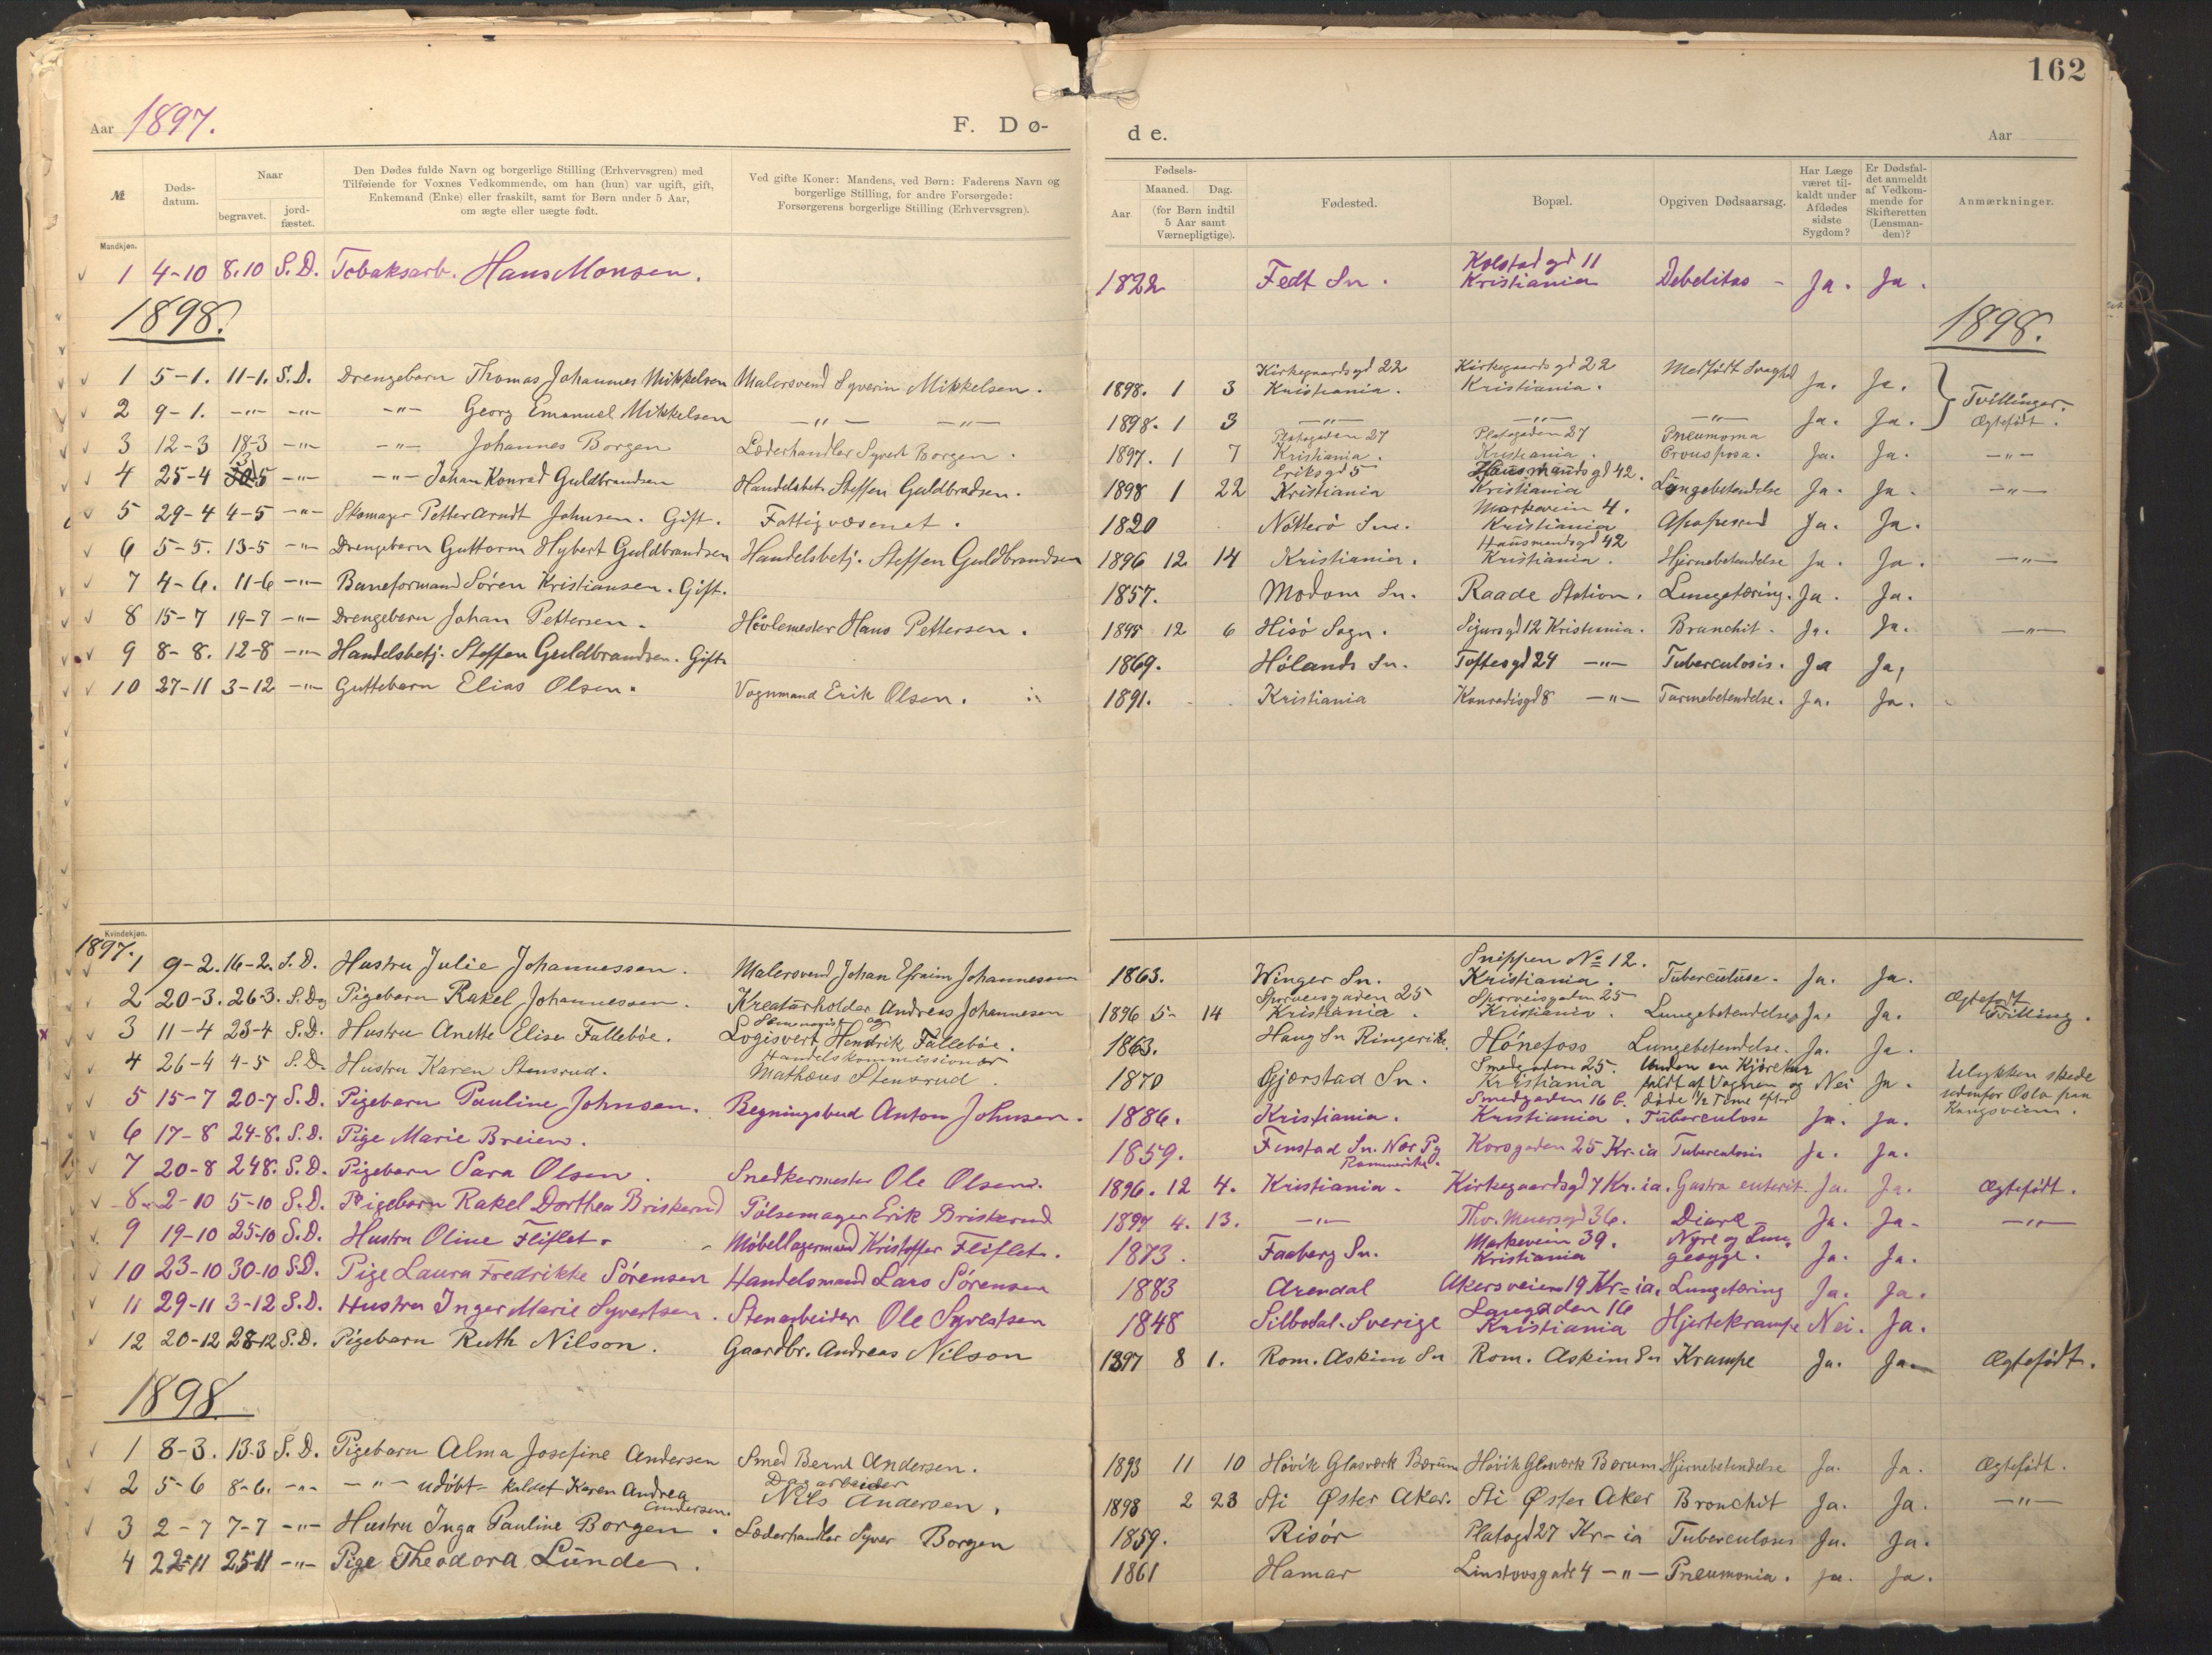 162
Aar 1897. F. Dø- de. Aar
№ Døds-datum. Naar begravet. jord-fæstet. Den Dødes fulde Navn og borgerlige Stilling (Erhvervsgren) med Tilføiende for Voxnes Vedkommende, om han (hun) var ugift, gift, Enkemand (Enke) eller fraskilt, samt for Børn under 5 Aar, om ægte eller uægte født. Ved gifte Koner: Mandens, ved Børn: Faderens Navn og borgerlige Stilling, for andre Forsørgede: Forsørgerens borgerlige Stilling (Erhvervsgren). Fødsels- Aar. Maaned. Dag. (for Børn indtil 5 Aar samt Værnepligtige). Fødested. Bopæl. Opgiven Dødsaarsag. Har Læge været til-kaldt under Afdødes sidste Sygdom? Er Dødsfal-det anmeldt af Vedkom-mende for Skifteretten (Lensman-den)? Anmærkninger.
Mandkjøn.
1 4-10 8.10 S.D. Tobaksarb. Hans Monsen. 1822 Fedt Sn. Kolstad gd 11 Kristiania Debelitas - Ja. Ja.
1898. 1898.
1 5-1. 11-1. S.D. Drengebarn Thomas Johannes Mikkelsen Malersvend Syverin Mikkelsen. 1898. 1 3 Kirkegaardsgd 22 Kristiania. Kirkegaardsgd 22 Kristiania. Medfødt Svaghd Ja. Ja. Tvillinger.
2 9-1. -"- -"- -"- Georg Emanuel Mikkelsen -"- -"- 1898. 1 3 -"- -"- -"- Ja. Ja. Ægtefødt.
3 12-3 18-3 -"- -"- Johannes Borgen Læderhandler Syvert Borgen. 1897. 1 7 Platogaden 27 Kristiania. Platogaden 27 Kristiania. Pneumoma Crousposa. Ja. Ja. -"-
4 25-4 3/5 -"- -"- Johan Konrad Guldbrandsen Handelsbet. Steffen Guldbradsen. 1898 1 22 Eriksgd 5 Kristiania Hausmandsgd 42. Kristiania Lungebetendelse Ja. Ja. -"-
5 29-4 4-5 -"- Skomager Petter Arndt Johnsen. Gift. Fattigvæsenet. 1820 Nøtterø Sn. Markvein 4. Kristiania Ja. Ja.
6 5-5. 13-5 -"- Drengebarn Guttorm Hybert Guldbrandsen Handelsbetj. Steffen Guldbrandsen 1896 12 14 Kristiania. Hausmandsgd 42 Kristiania. Hjernebetendelse Ja. Ja. -"-
7 4-6. 11-6 -"- Baneformand Søren Kristiansen. Gift. 1857. Modum Sn. Raade Station. Lungetæring. Ja. Ja.
8 15-7 19-7 -"- Drengebarn Johan Pettersen. Høvlemester Hans Pettersen. 1895 12 6 Hisø Sogn. Sigursgd 12 Kristiania. Branchit. Ja. Ja. -"-
9 8-8. 12-8 -"- Handelsbetj. Steffen Guldbrandsen. Gift. 1869. Hølands Sn. Toftesgd 24 -"- Tuberculosis. Ja Ja,
10 27-11 3-12 -"- Guttebarn Elias Olsen. Vognmand Erik Olsen. 1891. Kristiania Konradisgd 8 -"- Tarmebetendelse. Ja. Ja.
Kvindekjøn.
1897.
1 9-2. 16-2. S.D. Hustru Julie Johannessen. Malersvend Johan Efraim Johannessen 1863. Winger Sn. Snippen № 12. Kristiania. Tuberculuse. Ja. Ja.
2 20-3. 26-3. S.D. Pigebarn Rakel Johannessen. Kreaturholder Andreas Johannesen 1896 5- 14 Sporveisgaden 25 Kristiania. Sporveisgaden 25 Kristiania. Lungebetendelse Ja. Ja. Ægtefødt Tvilling.
3 11-4 23-4 S.D. Hustru Anette Elise Fallebøe. Logisvert Hendrik Fallebøe. 1863. Haug Sn Ringerike. Hønefoss Lungebetendelse. Ja. Ja.
4 26-4 4-5 S.D. Hustru Karen Stensrud. Handelskommissionær Mathæus Stensrud. 1870 Gjærstad Sn. Smedgaden 25. Kristiania Under en Kjøretur faldt af Vognen og døde 1/2 Time efter Nei Ja. Ulykken skede udenfor Oslo paa Kongsveien.
5 15-7 20-7 S.D. Pigebarn Pauline Johnsen. Begningsbud Anton Johnsen. 1886. Kristiania. Smedgaden 16 b. Kristiania. Tuberculose Ja. Ja.
6 17-8 24-8. S.D. Pige Marie Breien. 1859. Fenstad Sn. Nær Pg Rommerike. Korsgaden 25 Kr-ia Tuberculosis Ja. Ja.
7 20-8 248. S.D. Pigebarn Sara Olsen. Snedkermester Ole Olsen. 1896. 12 4. Kristiania. Kirkegaardsgd 7 Kr.ia. Gastro enterit. Ja. Ja. Ægtefødt.
8. 2-10 5-10 S.D. Pigebarn Rakel Dorthea Briskerud Pølsemager Erik Briskerud 1897 4. 13. -"- Thv. Meiersgd 36. Diare Ja. Ja. -"-
9 19-10 25-10 S.D. Hustru Oline Fliflet. Møbellagermand Kristoffer Fliflet. 1873. Faaberg Sn. Markvein 39. Kristiania Nyre og Lungesyge. Ja. Ja.
10 23-10 30-10 S.D. Pige Laura Fredrikke Sørensen Handelsmand Lars Sørensen 1883 Arendal Akersveien 19 Kr-ia. Lungetæring Ja. Ja.
11 29-11 3-12 S.D. Hustru Inger Marie Syvertsen. Stenarbeider Ole Syvertsen 1848 Silbodal. Sverige Langgaden 16 Kristiania Hjertekrampe Nei. Ja.
12 20-12 28-12 S.D. Pigebarn Ruth Nilson. Gaardbr. Andreas Nilson 1897 8 1. Rom. Askim Sn Rom. Askim Sn Krampe Ja. Ja. Ægtefødt.
1898
1 8-3. 13-3 S.D. Pigebarn Alma Josefine Andersen Smed Bernt Andersen. 1893 11 10 Høvik Glasværk Bærum Høvik Glasværk Bærum. Hjernebetendelse Ja. Ja. Ægtefødt.
2 5-6 8-6. -"- -"- udøbt - kaldet Karen Andrea Andersen. Dagarbeider Nils Andersen. 1898 2 23 Sti Øster Aker. Sti Øster Aker Bronchit Ja. Ja. -"-
3 2-7 7-7 -"- Hustru Inga Pauline Borgen. Læderhandler Syver Borgen 1859. Risør Platogd 27 Kr-ia Tuberculosis Ja. Ja.
4 22-11 25-11 -"- Pige Theodora Lunde. 1861 Hamar Linstowsgade 4 -"- Pneumonia. Ja. Ja.